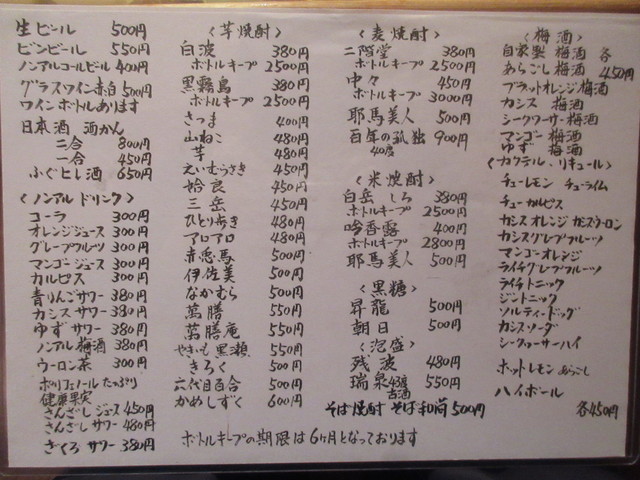 生ビール 500円
ビンビール 550円
ノンアルコールビール 400円
グラスワイン赤白 500円
ワインボトルあります
日本酒 酒かん
二合 800円
一合 450円
ふぐヒレ酒 650円
〈ノンアルドリンク〉
コーラ 300円
オレンジジュース 300円
グレープフルーツ 300円
マンゴージュース 300円
カルピス 300円
青りんごサワー 380円
カシスサワー 380円
ゆずサワー 380円
ノンアル梅酒 380円
ウーロン茶 300円
ポリフェノールたっぷり
健康果実
さんざしジュース 450円
さんざしサワー 480円
ざくろサワー 380円
〈芋焼酎〉
白波 380円
ボトルキープ 2500円
黒霧島 380円
ボトルキープ 2500円
さつま 400円
山ねこ 480円
芋 480円
えいむらさき 450円
姶良 450円
三岳 450円
ひとり歩き 480円
アロアロ 480円
赤兎馬 500円
伊佐美 500円
なかむら 500円
萬膳 550円
萬膳庵 550円
やきいも黒瀬 550円
きろく 500円
六代目百合 500円
かめしずく 600円
〈麦焼酎〉
二階堂 380円
ボトルキープ 2500円
中々 450円
ボトルキープ 3000円
耶馬美人 500円
百年の孤独 900円
40度
〈米焼酎〉
白岳 しろ 380円
ボトルキープ 2500円
吟香露 400円
ボトルキープ 2800円
耶馬美人 500円
〈黒糖〉
昇龍 500円
朝日 500円
〈泡盛〉
残波 480円
瑞泉43度 550円
古酒
そば焼酎 そば和尚 500円
〈梅酒〉
自家製 梅酒 各
あらごし梅酒 450円
ブラットオレンジ梅酒
カシス 梅酒
シークワーサー梅酒
マンゴー梅酒
ゆず 梅酒
〈カクテル、リキュール〉
チューレモン チューライム
チューカルピス
カシスオレンジ カシスウーロン
カシスグレプフルーツ
マンゴーオレンジ
ライチグレプフルーツ
ライチトニック
ジントニック
ソルティードッグ
カシスソーダ
シークヮーサーハイ
ホットレモン あらごし
ハイボール
各450円
ボトルキープの期限は6ヶ月となっております